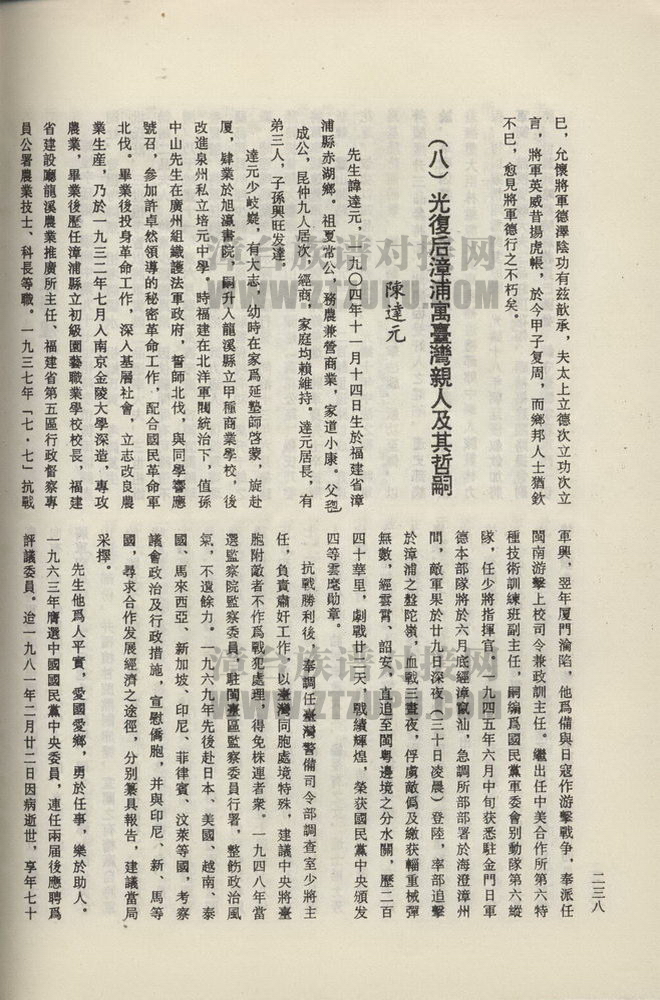 二三八
巳，允懷將軍德澤陰功有茲歆承，夫太上立德次立功次立
言，將軍英威昔揚虎帳，於今甲子复周，而鄉邦人士猶欽
不巳，愈見將軍德行之不朽矣。
（八）光復后漳浦寓臺灣親人及其哲嗣
陳達元
先生諱達元，一九〇四年十一月十四日生於福建省漳
浦縣赤湖鄉。祖夏常公，務農兼營商業，家道小康。父
成公，昆仲九人居次，經商，家庭均賴維持。達元居長，有
弟三人，子孫興旺发達。
達元少岐嶷，有大志，幼時在家爲延塾師啓蒙，旋赴
厦，肄業於旭瀛書院，嗣升入龍溪縣立甲種商業學校，後
改進泉州私立培元中學。時福建在北洋軍閥統治下，值孫
中山先生在廣州組織護法軍政府，誓師北伐，與同學響應
號召，參加許卓然領導的秘密革命工作，配合國民革命軍
北伐。畢業後投身革命工作，深入基層社會，立志改良農
業生産，乃於一九三二年七月入南京金陵大學深造，專攻
農業，畢業後歷任漳浦縣立初級園藝職業學校校長，福建
省建設廳龍溪農業推廣所主任、福建省第五區行政督察專
員公署農業技士、科長等職。一九三七年「七·七」抗戰
軍興，翌年厦門淪陷，他爲備與日寇作游擊戰争，奉派任
閩南游擊上校司令兼政訓主任。繼出任中美合作所第六特
種技術訓練班副主任，嗣編爲國民黨軍委會别動隊第六縱
隊，任少將指揮官。一九四五年六月中旬获悉駐金門日軍
德本部隊將於六月底經漳竄汕，急調所部部署於海澄漳州
間，敵軍果於廿九日深夜（三十日凌晨）登陸，率部追擊
於漳浦之盤陀嶺，血戰三晝夜，俘虜敵僞及繳获輜重械彈
無數，經雲霄、詔安，直追至閩粤邊境之分水關，歷二百
四十華里，劇戰廿三天，戰績輝煌，榮获國民黨中央頒发
四等雲麾勛章。
抗戰勝利後，奉調任臺灣警備司令部調查室少將主
任，負責肅奸工作，以臺灣同胞處境特殊，建議中央將臺
胞附敵者不作爲戰犯處理，得免株連者衆。一九四八年當
選監察院監察委員，駐閩臺區監察委員行署，整飭政治風
氣，不遺餘力。一九六九年先後赴日本、美國、越南、泰
國、馬來西亞、新加坡、印尼、菲律賓、汶萊等國，考察
議會政治及行政措施，宣慰僑胞，并與印尼、新、馬等
國，尋求合作发展經濟之途徑，分别纂具報告，建議當局
采擇。
先生他爲人平實，愛國愛鄉，勇於任事，樂於助人。
一九六三年膺選中國國民黨中央委員，連任兩届後應聘爲
評議委員。迨一九八一年二月廿二日因病逝世，享年七十
漳台族谱对接网
WWW.ZTZUPU.COM
漳台族谱对接网
WWW.ZTZUPU.COM